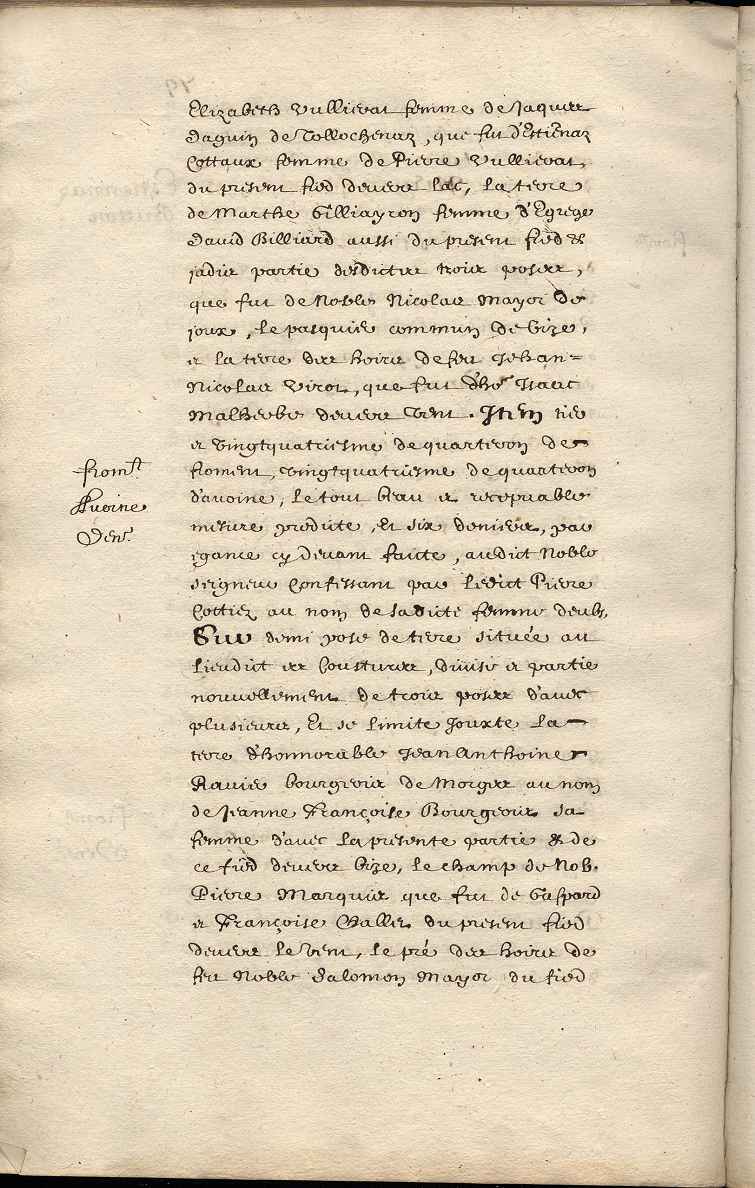 Elizabeth Vullievat femme de Jaques
Daguin de Tollochenaz, que fut d'Estienaz
Cottaux femme de Pierre Vullievat,
du present fied devers lac, la terre
de Marthe Gilliayron femme d'Egrege
David Billiard aussi du present fied &
jadis partie desdictes trois poses,
que fut de Noble Nicolas Mayor de
joux, le pasquier commun de bize,
et la terre des hoirs de feu Jehan=
Nicolas Virot, que fut d'ho.ble Isaac
Malherbe devers vent. Item tier
et vingtquatriesme de quarteron de
froment, vingtquatriesme de quarteron
d'avoine, le tout beau et recepvable
mesure predicte, Et six deniers, par
egance cy devant faicte, audict Noble
Seigneur Confessant par ledict Pierre
Cottier au nom de sadicte femme deubs,
Sur demi pose de terre située au
lieudict es Coustures, divisé et partie
nouvellement de trois poses d'avec
plusieurs, Et se limite Jouxte la
terre d'honnorable Jean Anthoine
Ravier bourgeois de Morges au nom
de Jeanne Françoise Bourgeois sa
femme d'avec la presente partie & de
ce fied devers bize, le champ de Nob.
Pierre Marquis que fut de Gaspard
et Françoise Vallier du present fied
devers le vent, le pré des hoirs de
feu Noble Salomon Mayor du fied
from.t
Avoine
Den.rs